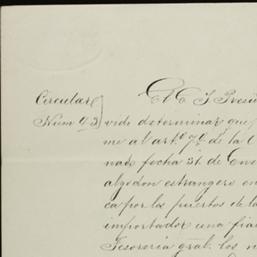 Circular
Núm 93
El C. S. Presi
vide determinar que
me al art.º 7.º de la O
nas fecha 31 de Ene
algodon estrangero en
ca por los puertos de la
importador una fian
Tesoreria gral. los n